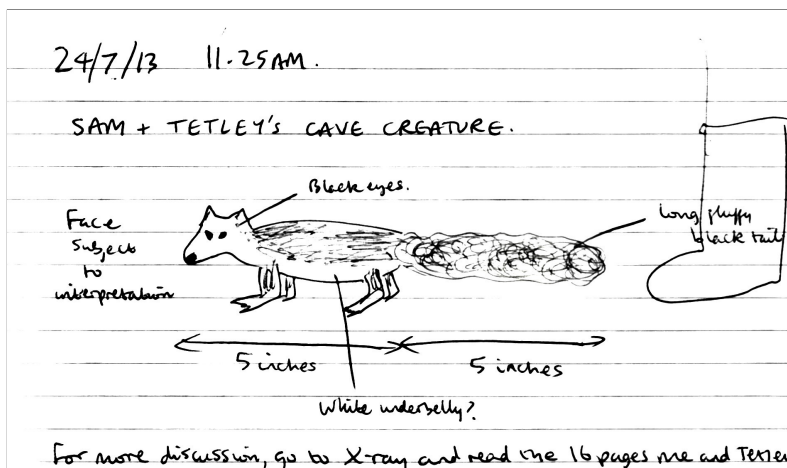 24/7/13 11.25AM.
SAM + TETLEY'S CAVE CREATURE.
Black eyes.
Face
subject
to
interpretation
Long fluffy
black tail
5 inches
5 inches
White underbelly?
For more discussion, go to X-ray and read the 16 pages me and Tetley